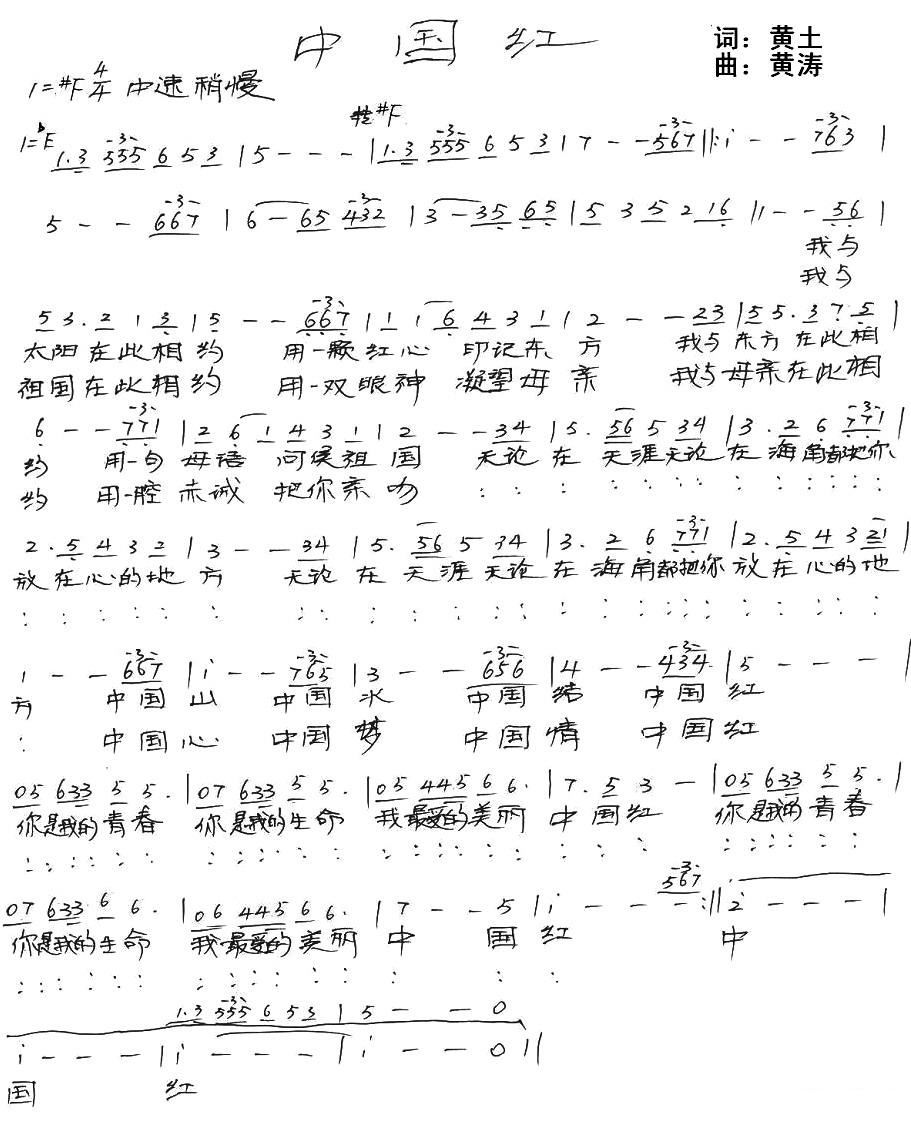 中国红
词：黄土
曲：黄涛
1=#F 4/4 中速稍慢
转#F
1=bE 1.3 555 6 5 3 | 5 - - - | 1.3 555 6 5 3 | 7 - - 567 ‖: i - - 763 |
5 - - 667 | 6 - 65 432 | 3 - 35 65 | 5 3 5 2 16 ‖ 1 - - 56 |
我与
我与
5 3. 2 1 3 | 5 - - 667 | 1 1 6 4 3 1 | 2 - - 23 | 5 5. 3 7 5 |
太阳在此相约 用一颗红心 印记东方 我与东方在此相
祖国在此相约 用一双眼神 凝望母亲 我与母亲在此相
6 - - 771 | 2 6 1 4 3 1 | 2 - - 34 | 5. 56 5 34 | 3. 2 6 771 |
约 用一句 母语 问候祖国 无论在 天涯无论在海角都把你
约 用一腔 赤诚 把你亲吻 : : : : : : : : : : : : :
2. 5 4 3 2 | 3 - - 34 | 5. 56 5 34 | 3. 2 6 771 | 2. 5 4 3 21 |
放在心的地方 无论在 天涯无论在海角都把你放在心的地
: : : : : : : : : : : : : : : : : : : : : : :
1 - - 667 | i - - 765 | 3 - - 656 | 4 - - 434 | 5 - - - |
方 中国山 中国水 中国结 中国红
: 中国心 中国梦 中国情 中国红
05 633 5 5. | 07 633 5 5. | 05 445 6 6. | 7. 5 3 - | 05 633 5 5. |
你是我的青春 你是我的生命 我最爱的美丽 中国红 你是我的青春
: : : : : : : : : : : : : : : : : : : : : : : : : : :
567
07 633 6 6. | 06 445 6 6. | 7 - - 5 | i - - - :‖ 2 - - - |
你是我的生命 我最爱的美丽 中国红 中
: : : : : : : : : : : : : : :
1.3 555 6 5 3 | 5 - - 0
i - - - | i - - - | i - - 0 ‖
国 红